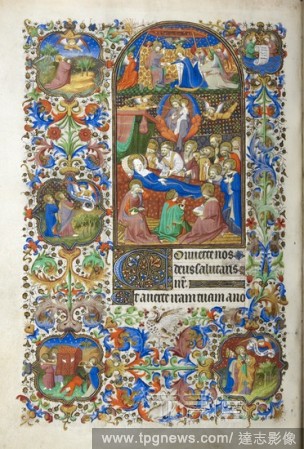 Conuerte nos
deus salutaris
nr̄.
Et auerte iram tuam a no
www.tpgnews.com/ 達志影像